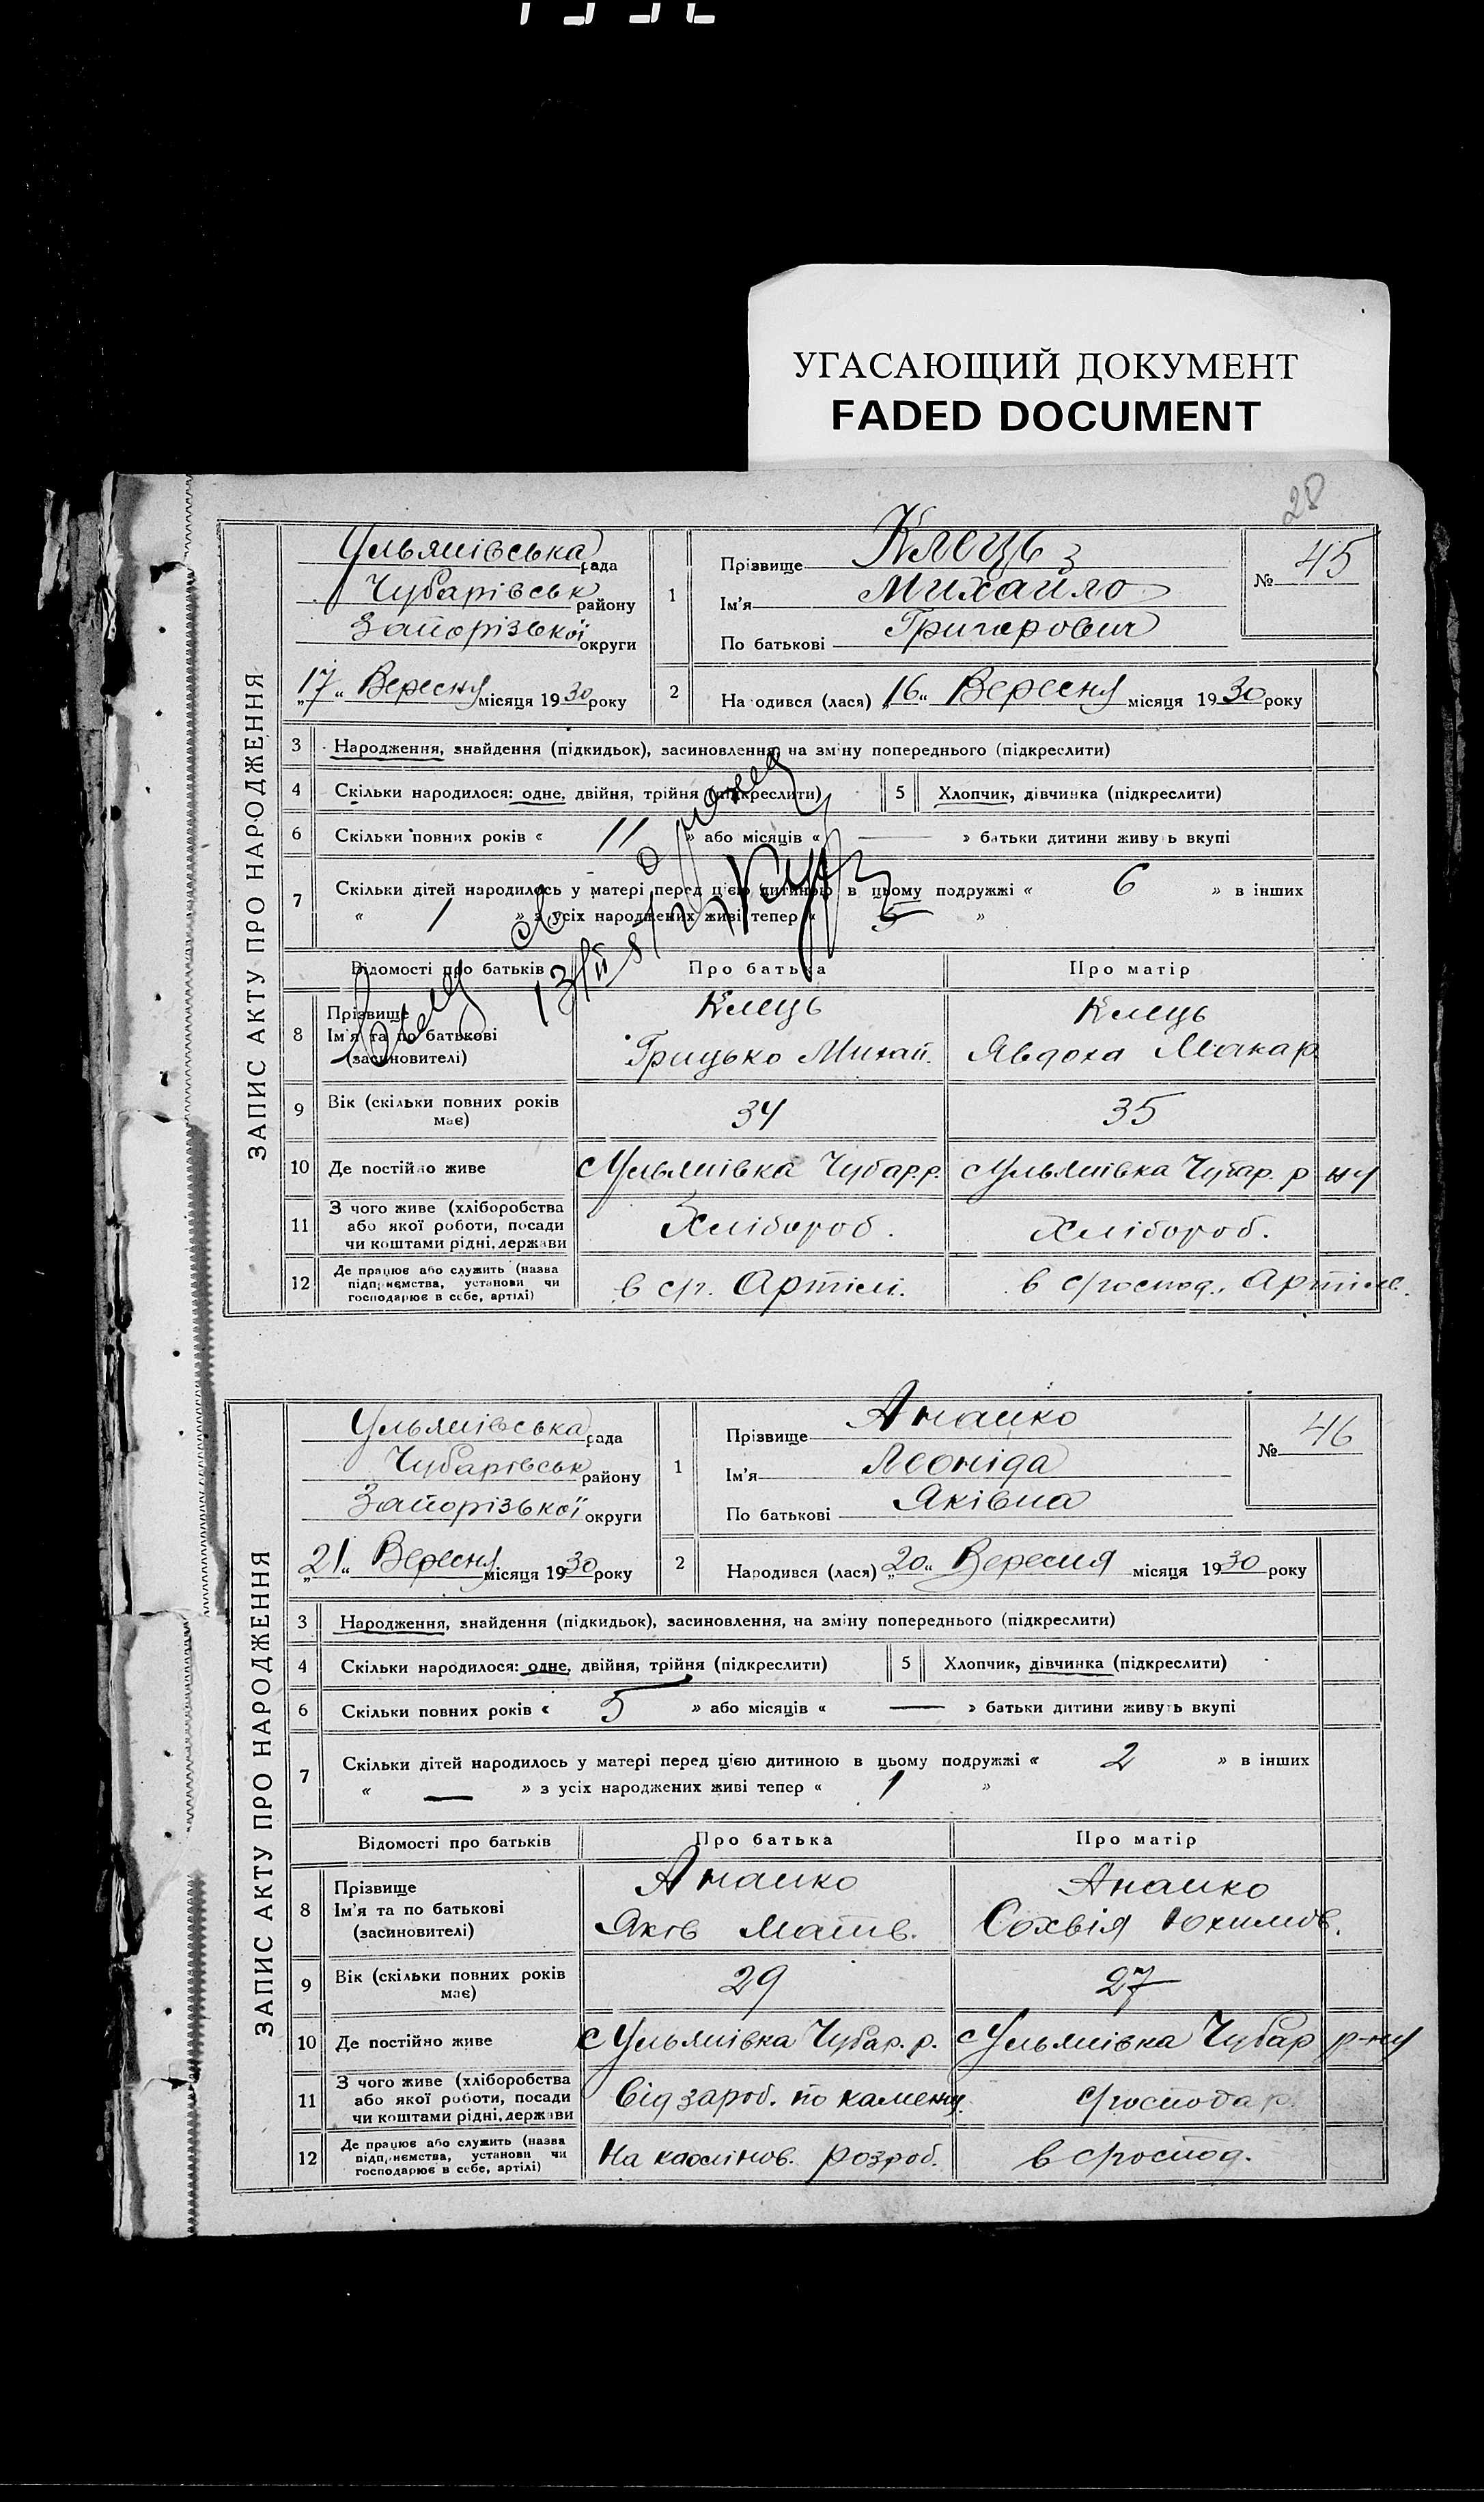 УГАСАЮЩИЙ ДОКУМЕНТ
FADED DOCUMENT
28
ЗАПИС АКТУ ПРО НАРОДЖЕННЯ
Ульянівська рада
Чубарівськ району
Запорізької округи
„17“ Вересня місяця 1930 року
1 Прізвище Клець
Ім'я Михайло
По батькові Григорович
№ 45
2 Народився (лася) „16“ Вересня місяця 1930 року
3 Народження, знайдення (підкидьок), засиновлення, на зміну попереднього (підкреслити)
4 Скільки народилося: одне, двійня, трійня (підкреслити) 5 Хлопчик, дівчинка (підкреслити)
6 Скільки повних років « 11 » або місяців « — » батьки дитини живуть вкупі
7 Скільки дітей народилось у матері перед цією дитиною в цьому подружжі « 6 » в інших
« 1 » з усіх народжених живі тепер « 5 »
Відомості про батьків Про батька Про матір
8 Прізвище Клець Клець
Ім'я та по батькові Грицько Михай. Явдоха Макар
(засиновителі)
9 Вік (скільки повних років має) 34 35
10 Де постійно живе с Ульянівка Чубар.р. с Ульянівка Чубар. р ну
11 З чого живе (хліборобства
або якої роботи, посади Хлібороб. Хлібороб.
чи коштами рідні, держави
12 Де працює або служить (назва
підприємства, установи чи в с/г. Артілі. в с/господ. Артілі.
господарює в себе, артілі)
ЗАПИС АКТУ ПРО НАРОДЖЕННЯ
Ульянівська рада
Чубарівськ району
Запорізької округи
„21“ Вересня місяця 1930 року
1 Прізвище Ананко
Ім'я Леоніда
По батькові Яківна
№ 46
2 Народився (лася) „20“ Вересня місяця 1930 року
3 Народження, знайдення (підкидьок), засиновлення, на зміну попереднього (підкреслити)
4 Скільки народилося: одне, двійня, трійня (підкреслити) 5 Хлопчик, дівчинка (підкреслити)
6 Скільки повних років « 5 » або місяців « — » батьки дитини живуть вкупі
7 Скільки дітей народилось у матері перед цією дитиною в цьому подружжі « 2 » в інших
« — » з усіх народжених живі тепер « 1 »
Відомості про батьків Про батька Про матір
8 Прізвище Ананко Ананко
Ім'я та по батькові Яків Матв. Сохвія Юхимов.
(засиновителі)
9 Вік (скільки повних років має) 29 27
10 Де постійно живе с Ульянівка Чубар. р. с Ульянівка Чубар р-ну
11 З чого живе (хліборобства
або якої роботи, посади Від зароб. по каменю. с/господар.
чи коштами рідні, держави
12 Де працює або служить (назва
підприємства, установи чи На каолінов. розроб. в с/господ.
господарює в себе, артілі)